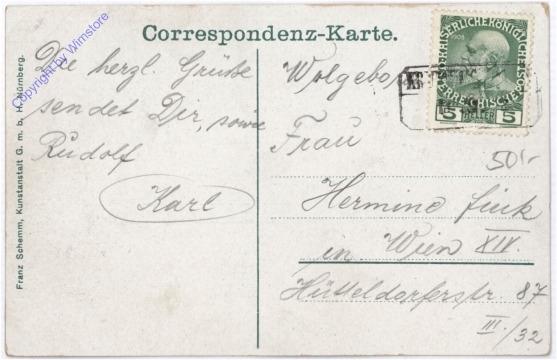 Correspondenz-Karte.
Die herzl. Grüße
sendet Dir, sowie
Rudolf
Karl
Wolgebo
Frau
Hermine Fink
in Wien XIV.
Hütteldorferstr 87
III./32
50.-
1908
5 HELLER 5
Franz Schemm, Kunstanstalt G. m. b. H. Nürnberg.
Copyright by Wimstore